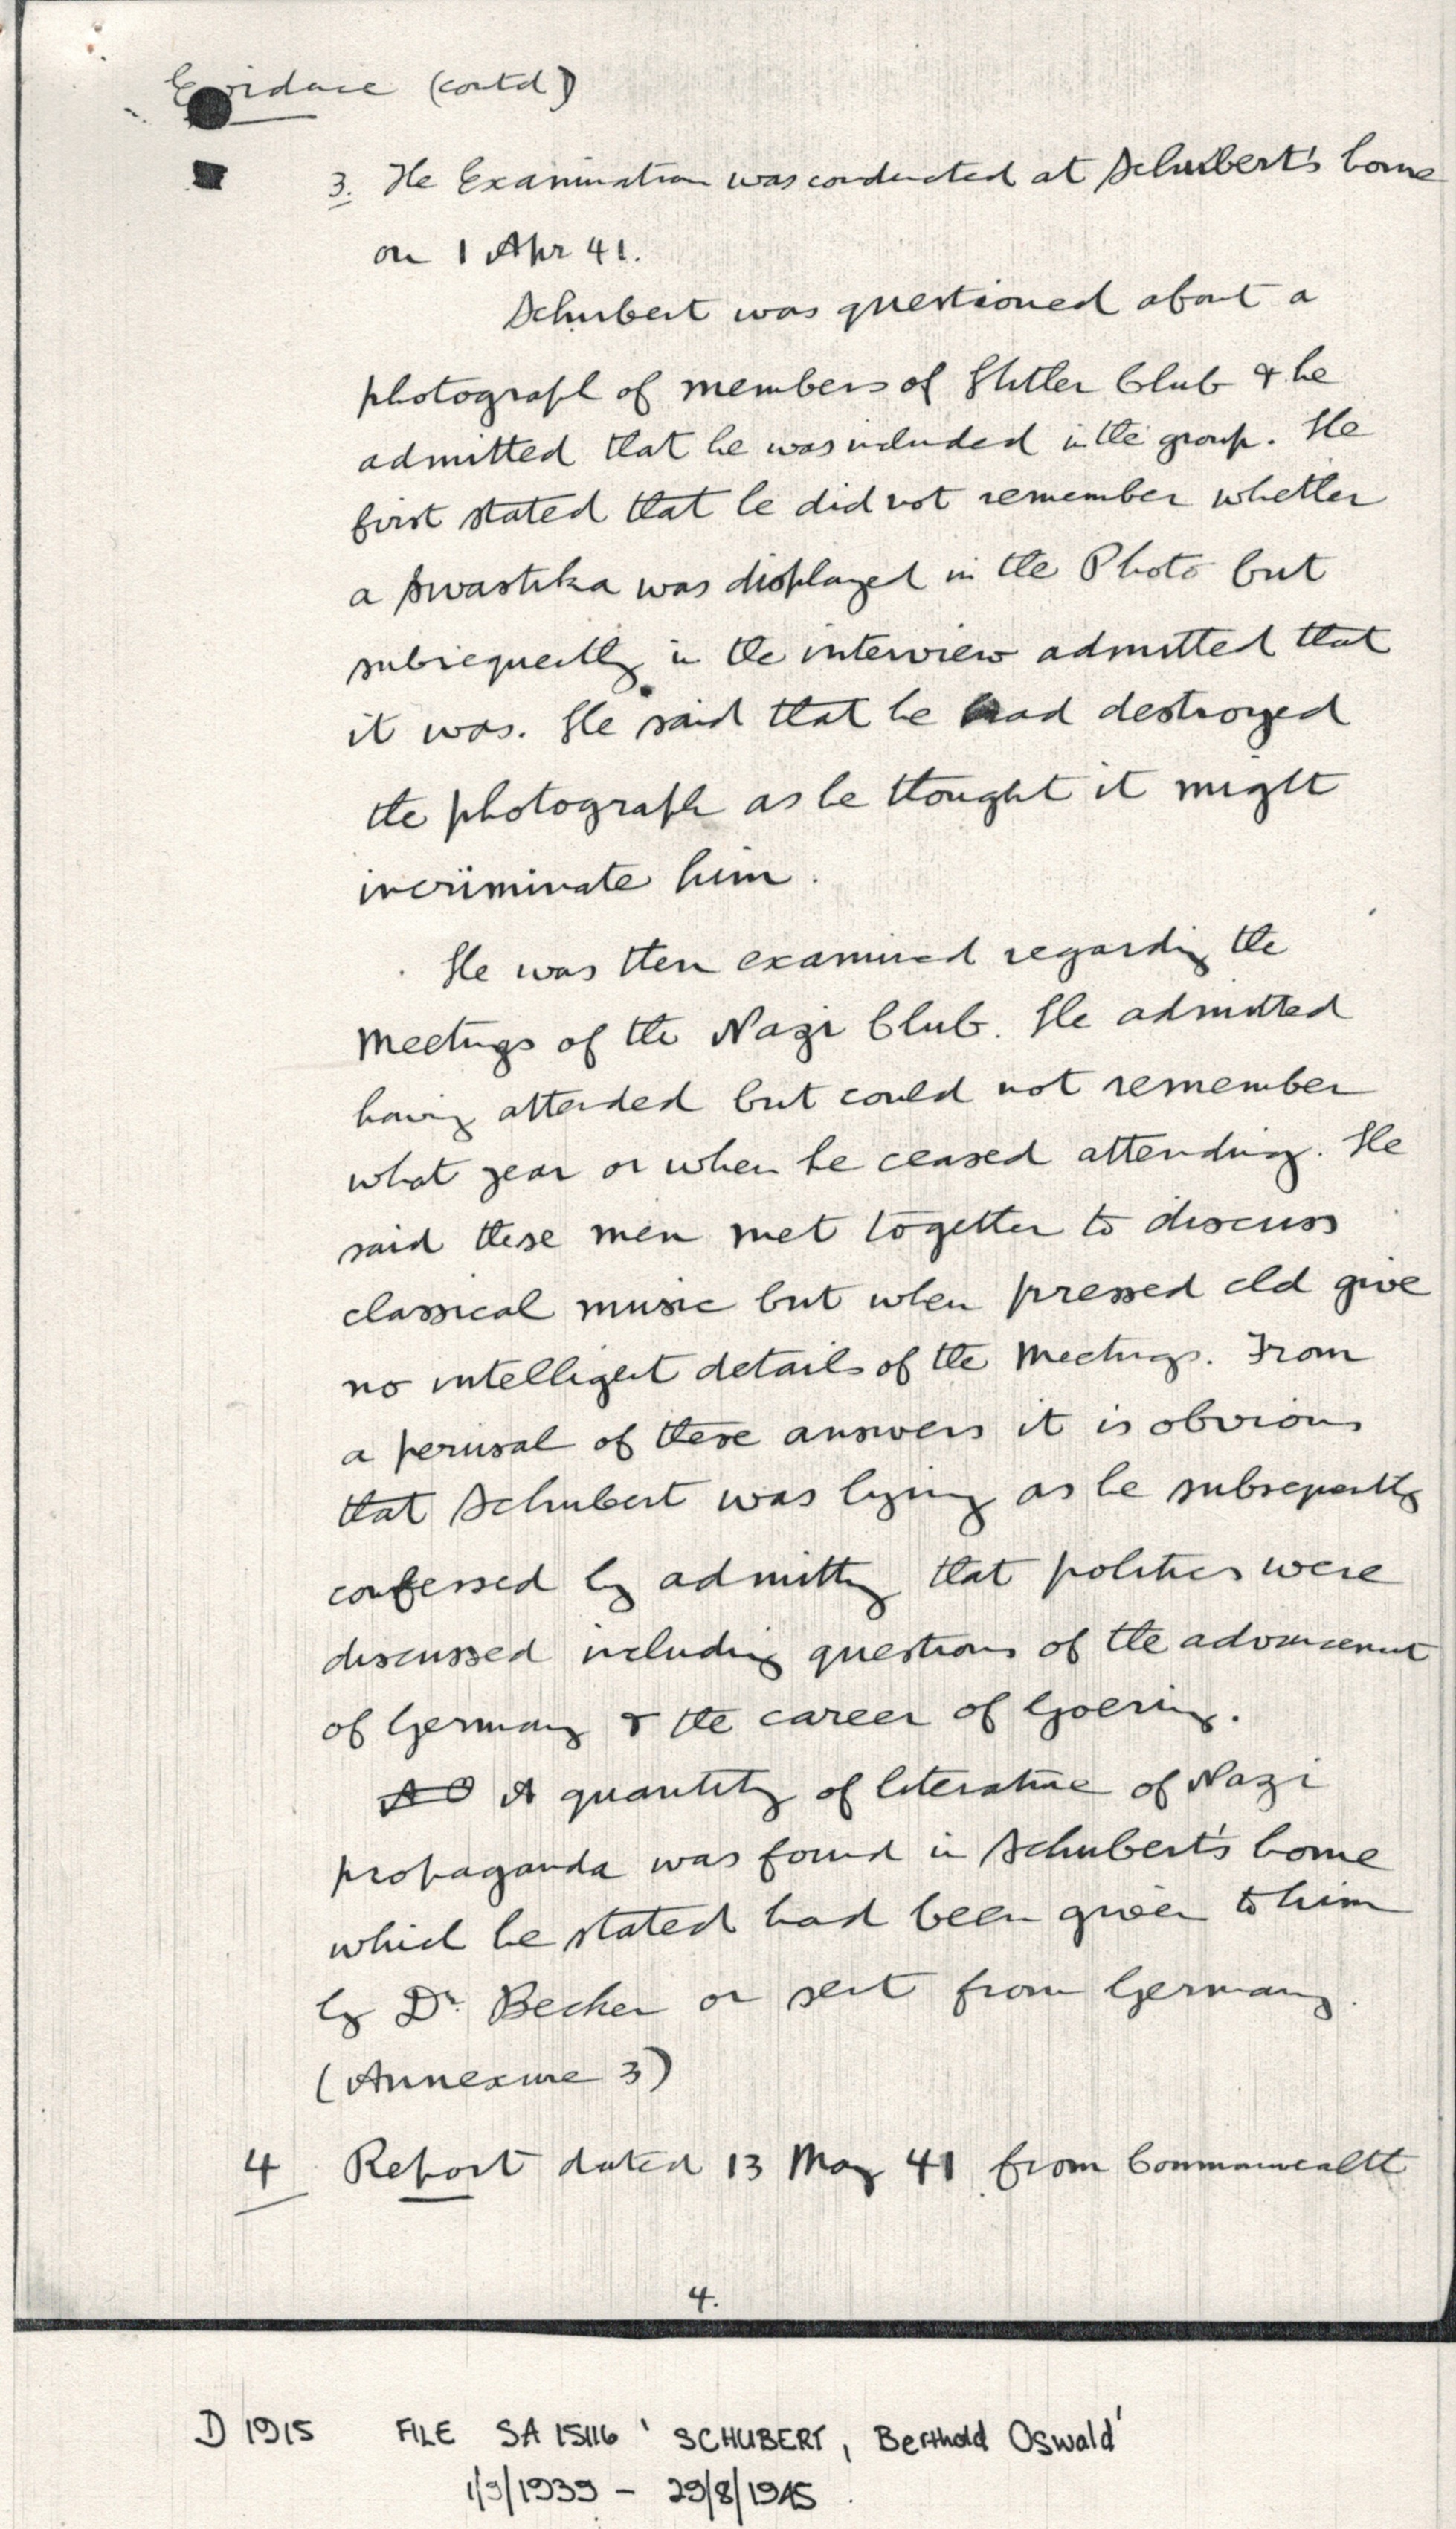 Evidence (contd)
3. The Examination was conducted at Schubert's home
on 1 Apr 41.
Schubert was questioned about a
photograph of members of Hitler Club & he
admitted that he was included in the group. He
first stated that he did not remember whether
a swastika was displayed in the Photo but
subsequently in the interview admitted that
it was. He said that he had destroyed
the photograph as he thought it might
incriminate him.
He was then examined regarding the
Meetings of the Nazi Club. He admitted
having attended but could not remember
what year or when he ceased attending. He
said these men met together to discuss
classical music but when pressed cld give
no intelligent details of the Meetings. From
a perusal of these answers it is obvious
that Schubert was lying as he subsequently
confessed by admitting that politics were
discussed including questions of the advancement
of Germany & the career of Goering.
A quantity of literature of Nazi
propaganda was found in Schubert's home
which he stated had been given to him
by Dr. Becker or sent from Germany.
(Annexure 3)
4 Report dated 13 May 41 from Commonwealth
4.
D 1915 FILE SA 15116 ' SCHUBERT, Berthold Oswald'
1/9/1939 - 29/8/1945.